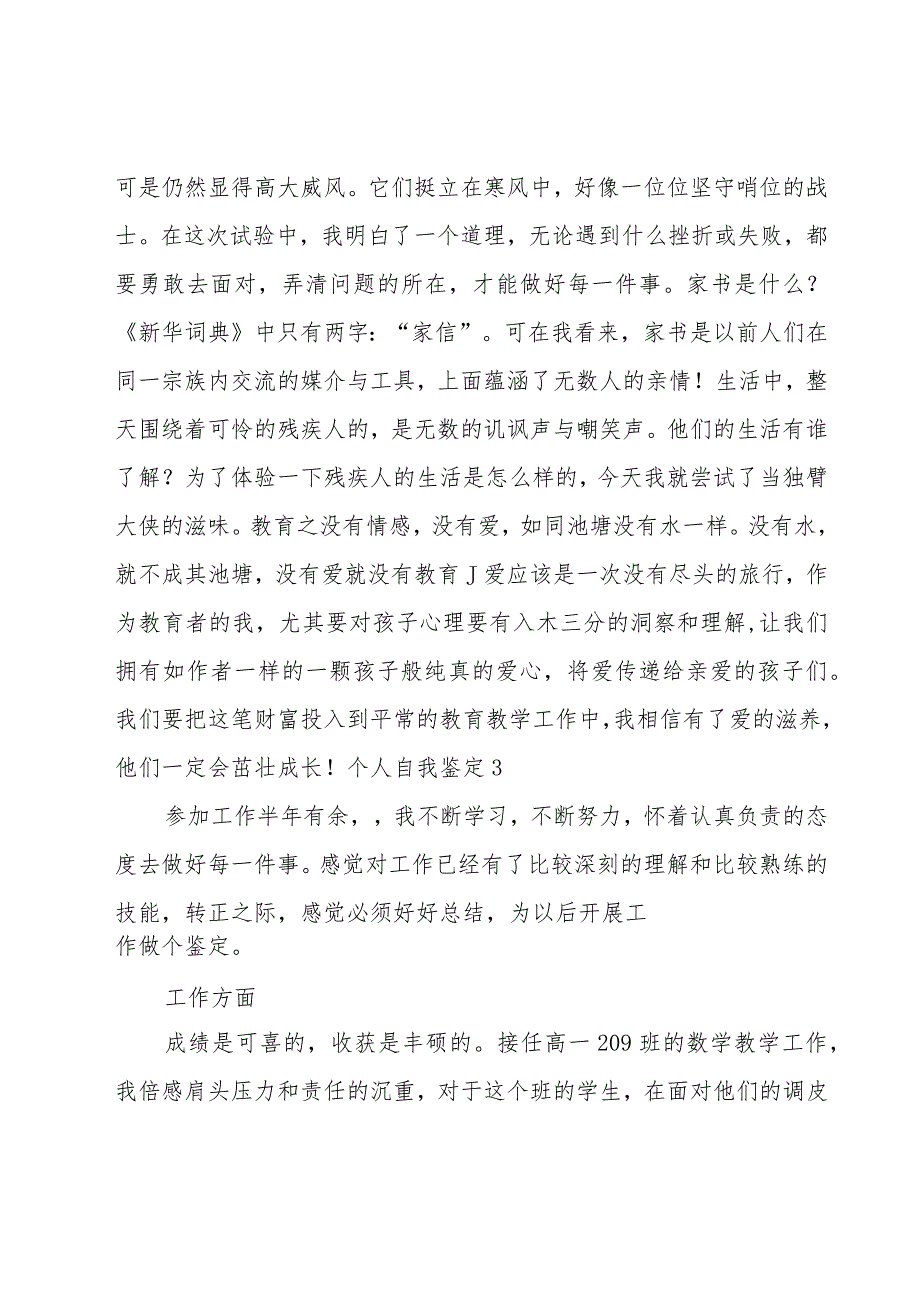 可是仍然显得高大威风。它们挺立在寒风中，好像一位位坚守哨位的战
士。在这次试验中，我明白了一个道理，无论遇到什么挫折或失败，都
要勇敢去面对，弄清问题的所在，才能做好每一件事。家书是什么？
《新华词典》中只有两字：“家信”。可在我看来，家书是以前人们在
同一宗族内交流的媒介与工具，上面蕴涵了无数人的亲情！生活中，整
天围绕着可怜的残疾人的，是无数的讥讽声与嘲笑声。他们的生活有谁
了解？为了体验一下残疾人的生活是怎么样的，今天我就尝试了当独臂
大侠的滋味。教育之没有情感，没有爱，如同池塘没有水一样。没有水，
就不成其池塘，没有爱就没有教育J爱应该是一次没有尽头的旅行，作
为教育者的我，尤其要对孩子心理要有入木三分的洞察和理解,让我们
拥有如作者一样的一颗孩子般纯真的爱心，将爱传递给亲爱的孩子们。
我们要把这笔财富投入到平常的教育教学工作中,我相信有了爱的滋养，
他们一定会茁壮成长！个人自我鉴定3
参加工作半年有余，，我不断学习，不断努力，怀着认真负责的态
度去做好每一件事。感觉对工作已经有了比较深刻的理解和比较熟练的
技能，转正之际，感觉必须好好总结，为以后开展工
作做个鉴定。
工作方面
成绩是可喜的，收获是丰硕的。接任高一209班的数学教学工作，
我倍感肩头压力和责任的沉重，对于这个班的学生，在面对他们的调皮